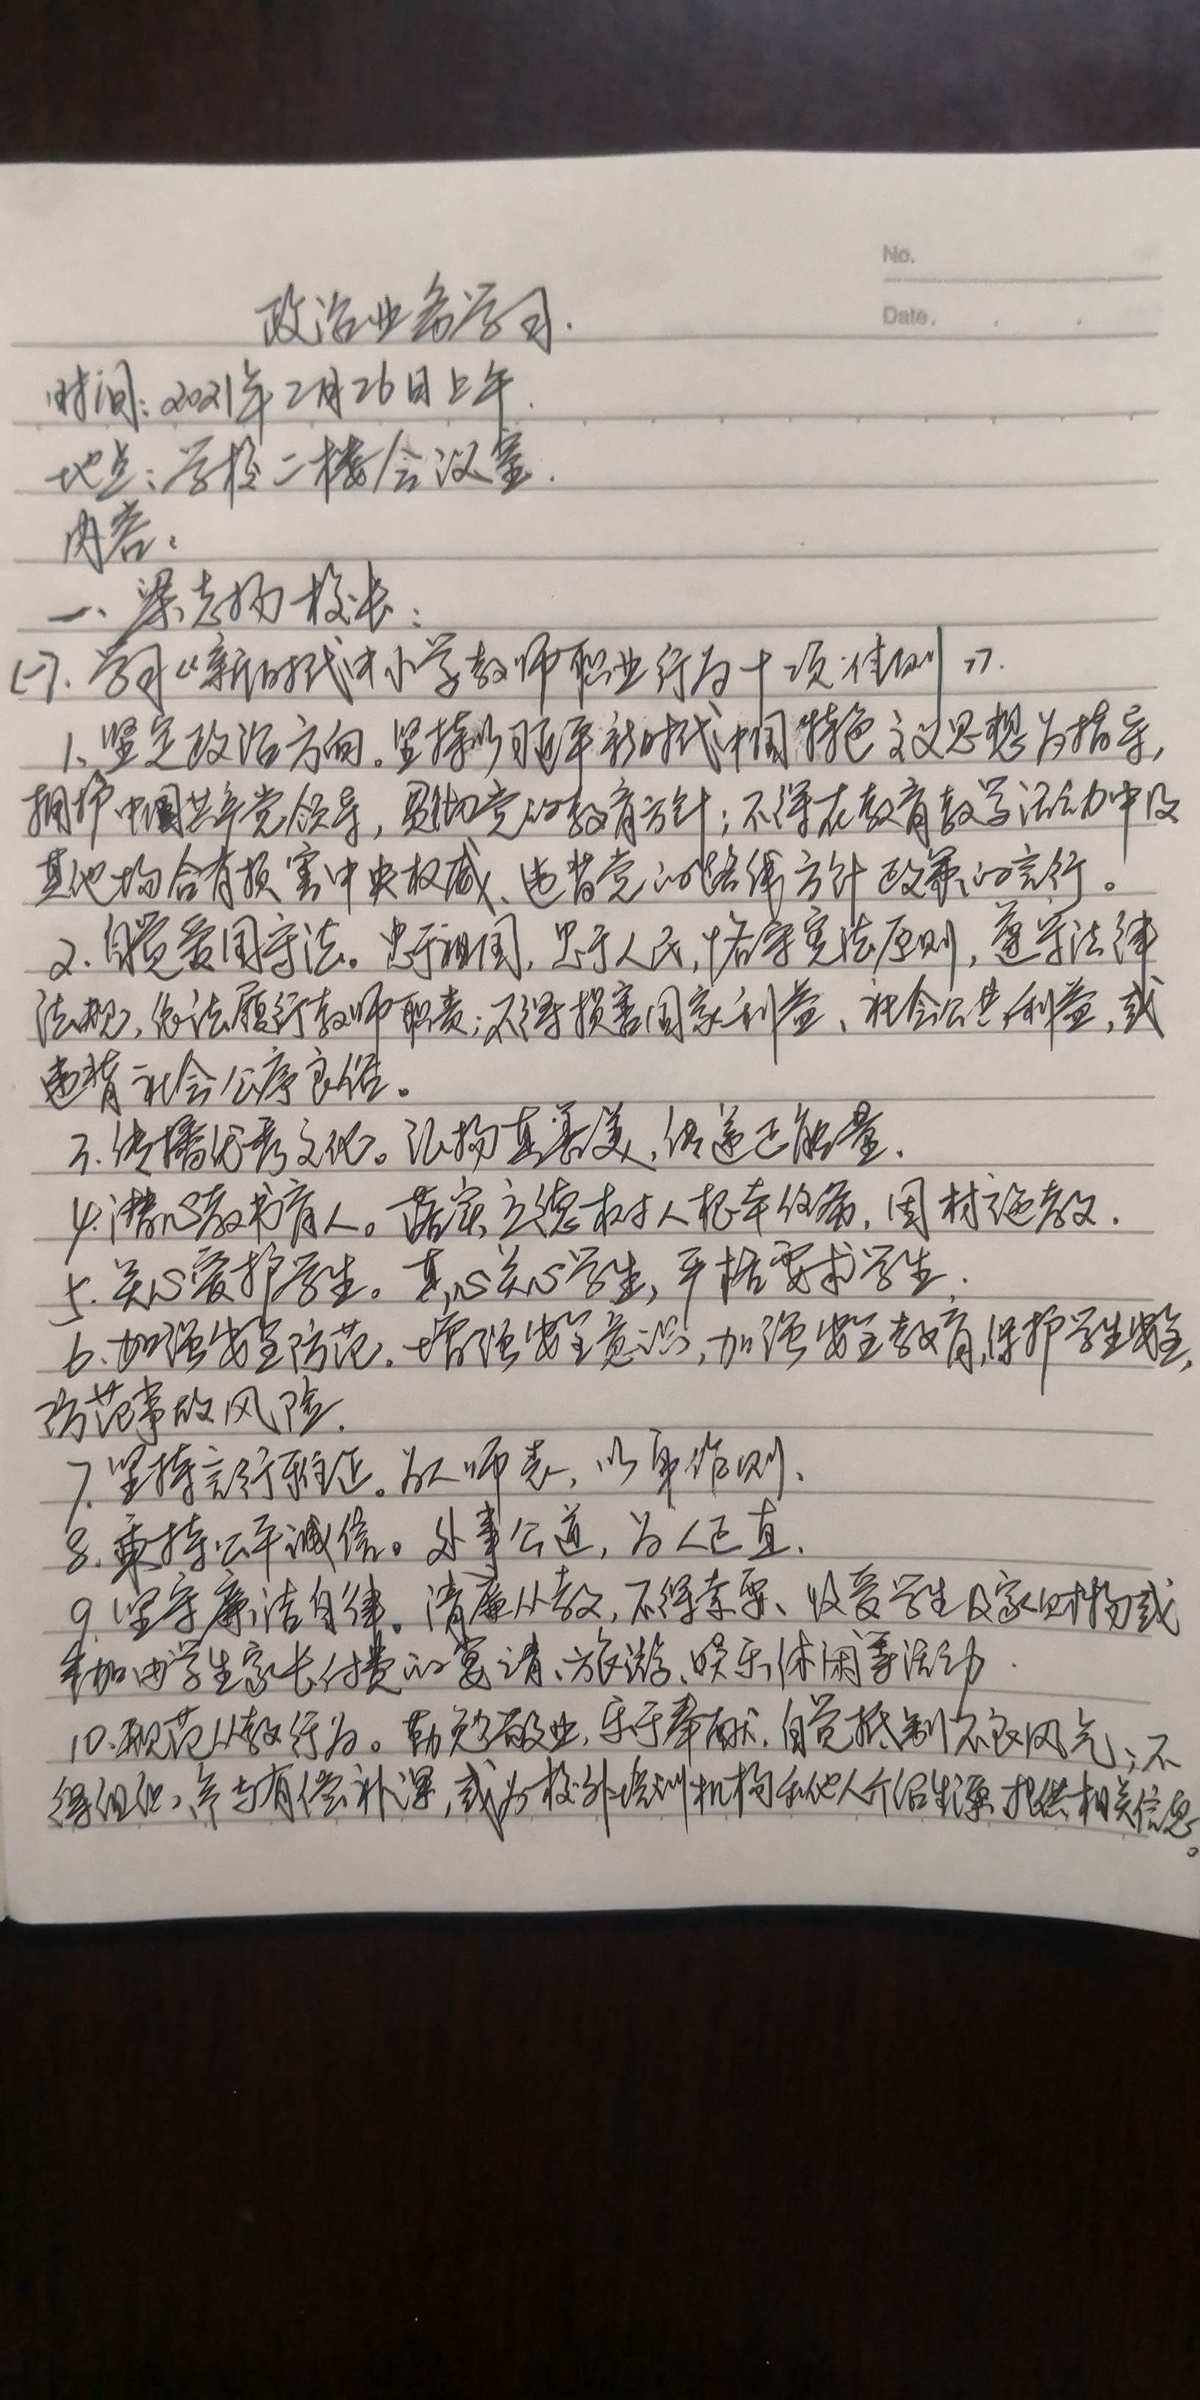 No.
Date.
政治业务学习.
时间:2021年2月26日上午.
地点:学校二楼会议室.
内容:
一、梁志扬校长:
(一).学习《新时代中小学教师职业行为十项准则》.
1、坚定政治方向。坚持以习近平新时代中国特色主义思想为指导,
拥护中国共产党领导,贯彻党的教育方针;不得在教育教学活动中及
其他场合有损害中央权威、违背党的路线方针政策的言行。
2、自觉爱国守法。忠于祖国,忠于人民,恪守宪法原则,遵守法律
法规,依法履行教师职责;不得损害国家利益、社会公共利益,或
违背社会公序良俗。
3.传播优秀文化。弘扬真善美,传递正能量.
4.潜心教书育人。落实立德树人根本任务,因材施教.
5.关心爱护学生。真心关心学生,严格要求学生.
6、加强安全防范。增强安全意识,加强安全教育,保护学生安全,
防范事故风险.
7.坚持言行雅正。为人师表,以身作则、
8.秉持公平诚信。处事公道,为人正直.
9.坚守廉洁自律。清廉从教,不得索要、收受学生及家长财物或
参加由学生家长付费的宴请、旅游、娱乐休闲等活动.
10.规范从教行为。勤勉敬业,乐于奉献,自觉抵制不良风气;不
得组织、参与有偿补课,或为校外培训机构和他人介绍生源、提供相关信息。